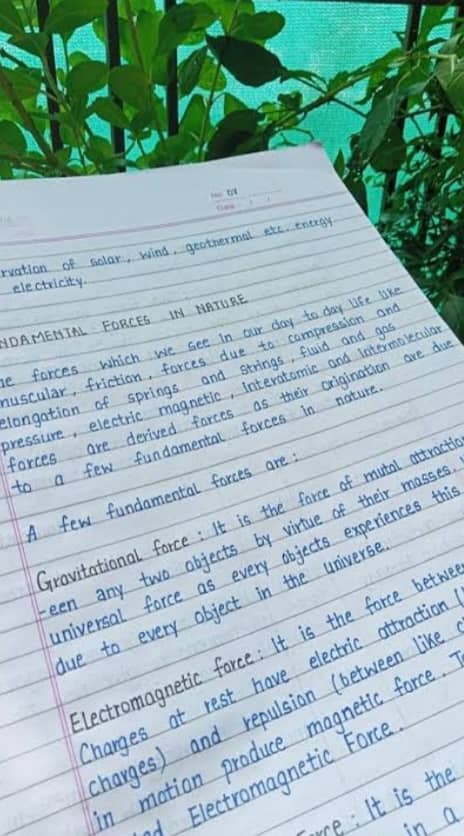 No. 07
Date / /
rvation of solar, wind, geothermal etc. energy
electricity.
NDAMENTAL FORCES IN NATURE
he forces which we see in our day to day life like
muscular, friction, forces due to compression and
elongation of springs and strings, fluid and gas
pressure, electric magnetic, interatomic and intermolecular
forces are derived forces as their origination are due
to a few fundamental forces in nature.
A few fundamental forces are:
Gravitational force: It is the force of mutal attraction
-een any two objects by virtue of their masses.
universal force as every objects experiences this
due to every object in the universe..
Electromagnetic force: It is the force betwee
Charges at rest have electric attraction
charges) and repulsion (between like
in motion produce magnetic force.
Electromagnetic Force.
It is the
in a